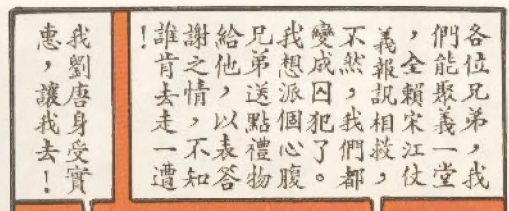 各位兄弟，我
們能聚義一堂
，全賴宋江仗
義報訊相救，
不然，我們都
變成囚犯了。
我想派個心腹
兄弟送點禮物
給他，以表答
謝之情，不知
誰肯去走一遭
！
我劉唐身受實
惠，讓我去！